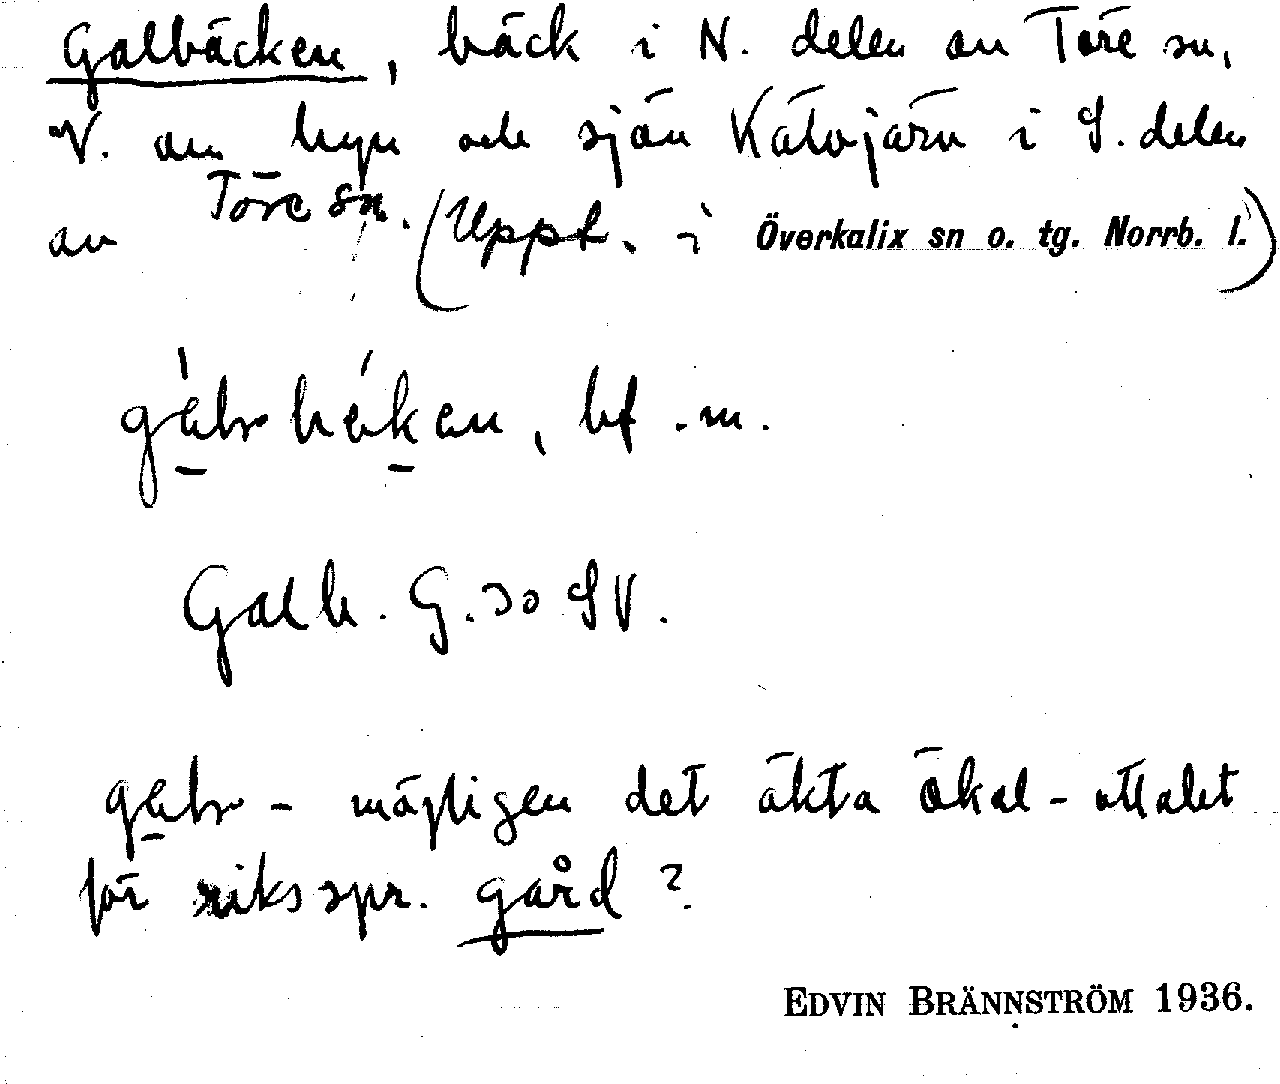 Galbäcken, bäck i N. delen av Töre sn,
V. om byn och sjön Kätojärv i S. delen
av Töre sn. (Uppt. i Överkalix sn o. tg. Norrb. l.)
bäken, bf. m.
Galb. G. 30 SV.
möjligen det äkta ökal-uttalet
för riksspr. gård?
EDVIN BRÄNNSTRÖM 1936.